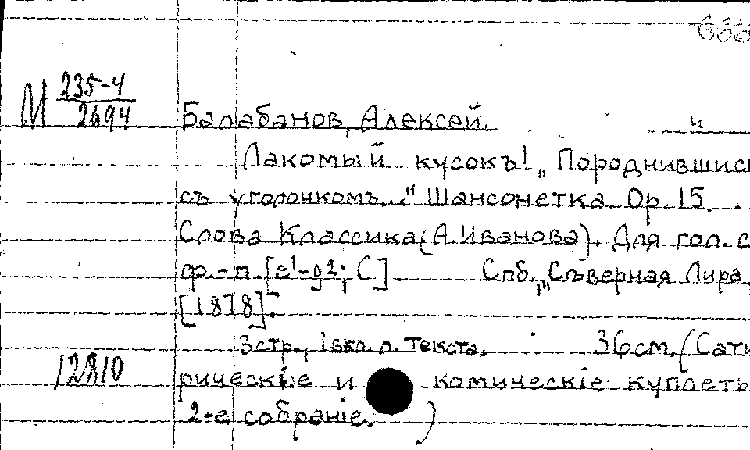 М 235-4/2694
Балабанов, Алексей.
Лакомый кусокъ! „Породнившись
съ уголочкомъ..." Шансонетка. Op. 15.
Слова Классика (А. Иванова). Для гол. с
ф.-п. [c¹-g2; C] Спб., „Съверная Лира,
[1878].
3 стр., 1 вкл. л. текста. 36 см. (Сати
12810 рическiе и комическiе куплеты
2-е собранiе. )